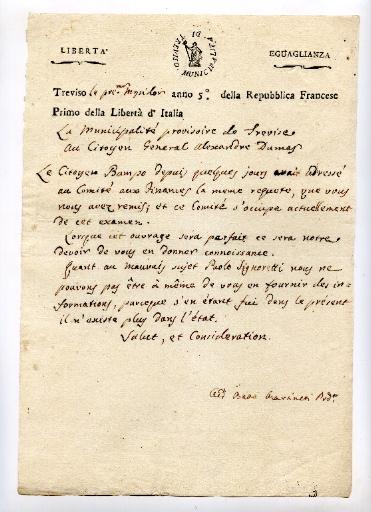 LIBERTA'
MUNICIPALITA DI TREVISO
EGUAGLIANZA
Treviso le pre. Messidor anno 5°. della Repubblica Francese
Primo della Libertà d' Italia
La Municipalité provisoire de Trevise
au Citoyen General Alexandre Dumas
Le Citoyen Bampo depuis quelques jours avait adressé
au Comité aux Finances la meme requete, que vous
nous avez remis; et ce Comité s'occupe actuellement
de cet examen.
Lorsque cet ouvrage sera parfait ce sera notre
devoir de vous en donner connoissance.
Quant au mauvais sujet Paolo Signoretti nous ne
pouvons pas être à même de vous en fournir des in-
formations, parceque s'en étant fui dans le présent
il n'existe plus dans l'état.
Salut, et Consideration.